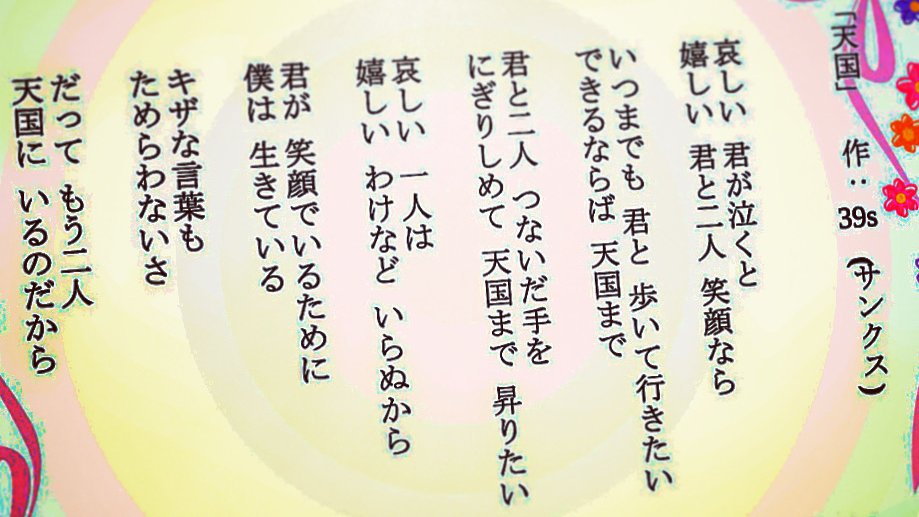 「天国」 作：39s (サンクス)
哀しい 君が泣くと
嬉しい 君と二人 笑顔なら
いつまでも 君と 歩いて行きたい
できるならば 天国まで
君と二人 つないだ手を
にぎりしめて 天国まで 昇りたい
哀しい 一人は
嬉しい わけなど いらぬから
君が 笑顔でいるために
僕は 生きている
キザな言葉も
ためらわないさ
だって もう二人
天国に いるのだから